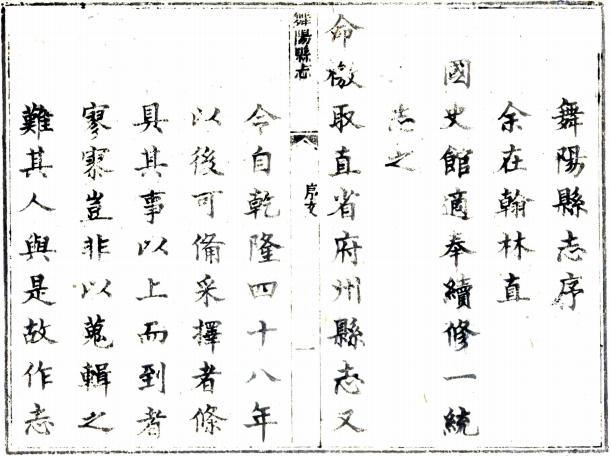 舞陽縣志序
余在翰林直
國史館適奉續修一統
志之
命檄取直省府州縣志又
舞陽縣志
序文
一
今自乾隆四十八年
以後可備采擇者條
具其事以上而到者
寥寥豈非以蒐輯之
難其人與是故作志